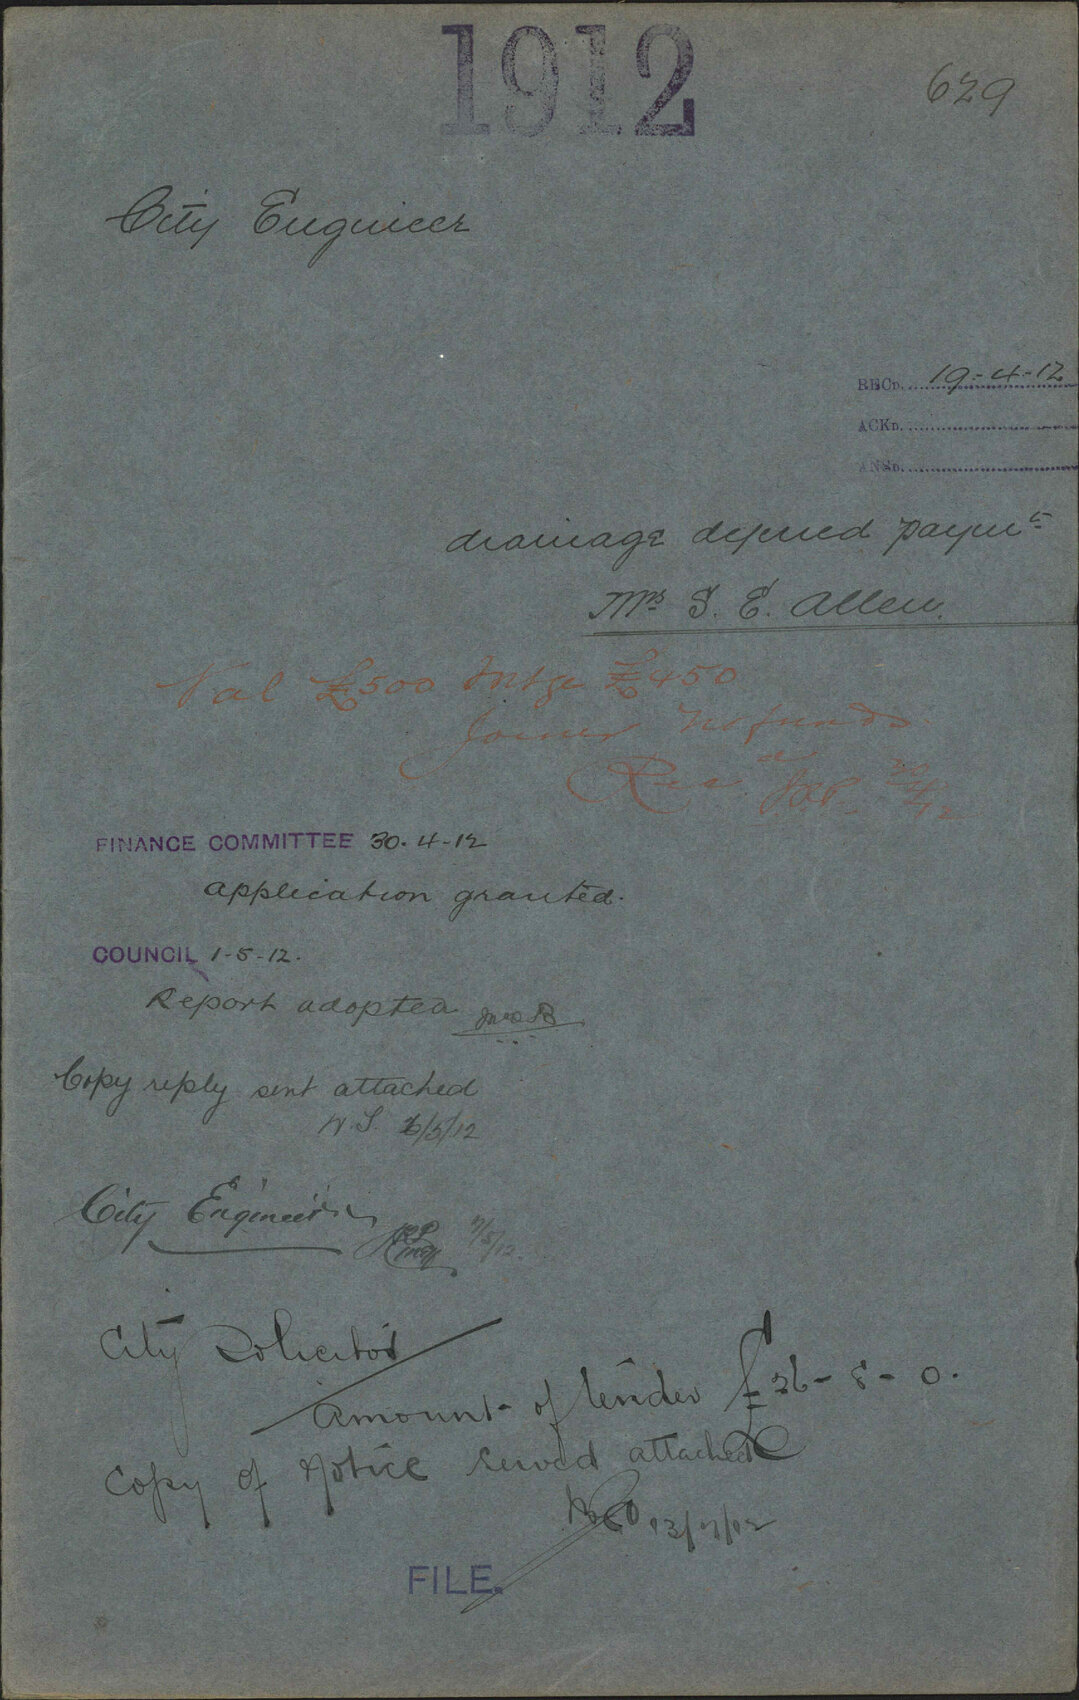 1912
629
City Engineer
RECD. 19-4-12
ACKD.
ANSD.
drainage deferred paymts
Mrs S. E. Allen.
Val £500 Mtge £450
Joiner No funds.
Rec 30/4/12
FINANCE COMMITTEE 30.4-12
application granted.
COUNCIL 1-5-12.
Report adopted
Copy reply sent attached
W.S. 6/5/12
City Engineer
7/5/12.
City Solicitor
Amount of tender £36-8-0.
Copy of Notice served attached
13/7/12
FILE.